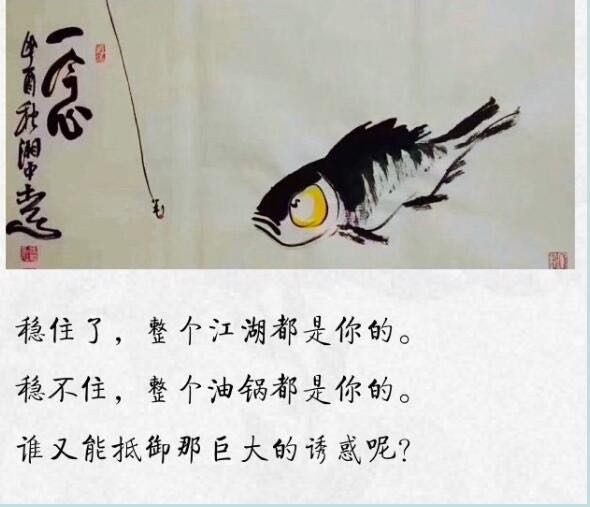 一念
酉秋
稳住了，整个江湖都是你的。
稳不住，整个油锅都是你的。
谁又能抵御那巨大的诱惑呢？